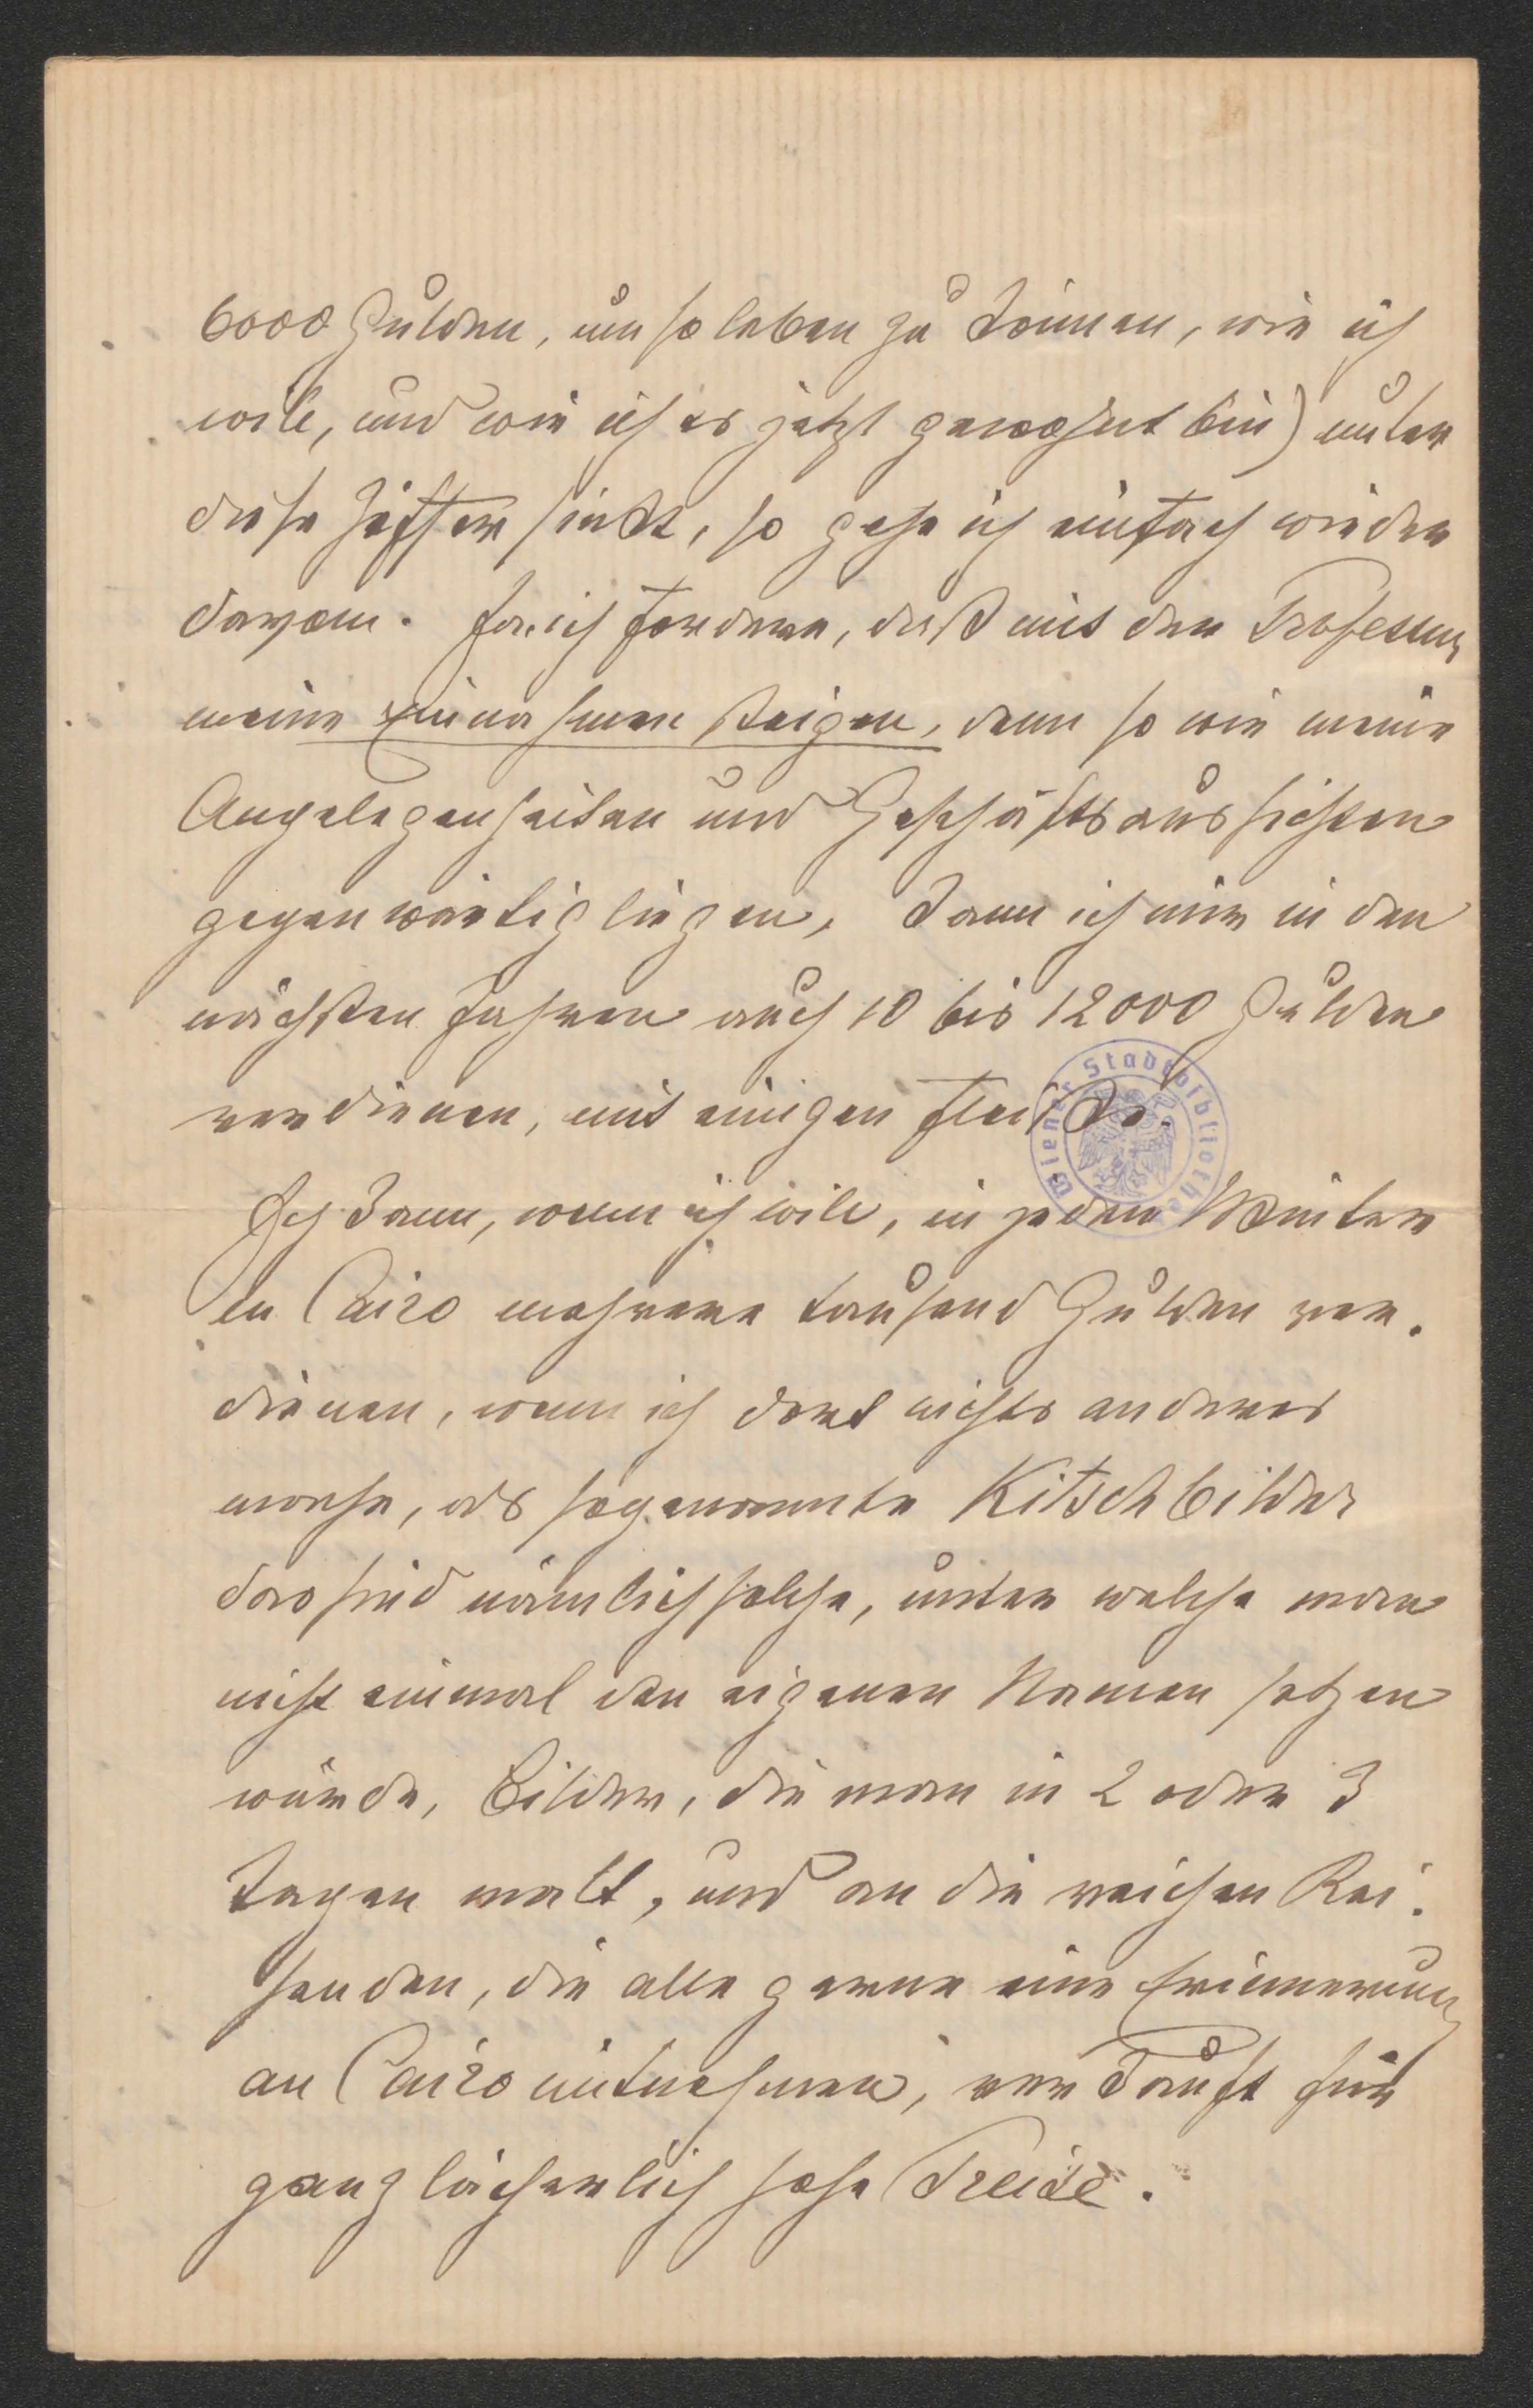 6000 Gulden, um so leben zu können, wie ich
will, und wie ich es jetzt gewohnt bin) unter
diese Ziffer sinkt, so gehe ich einfach wieder
davon. Ja, ich fordere, daß mit der Professur
meine Einnahmen steigen, denn so wie meine
Angelegenheiten und Geschäftsaussichten
gegenwärtig liegen, kann ich mir in den
nächsten Jahren auch 10 bis 12000 Gulden
verdienen, mit einigen Fleiße.
Ich kann, wenn ich will, in jedem Winter
in Cairo mehrere tausend Gulden ver-
dienen, wenn ich dort nichts anderes
mache, als sogenannte Kitschbilder
das sind nämlich solche, unter welche man
nicht einmal den eigenen Namen setzen
würde, Bilder, die man in 2 oder 3
Tagen malt, und an die reichen Rei-
senden, die alle gerne eine Erinnerung
an Cairo mitnehmen, verkauft für
ganz lächerlich hohe Preise.
Wiener Stadtbibliothek